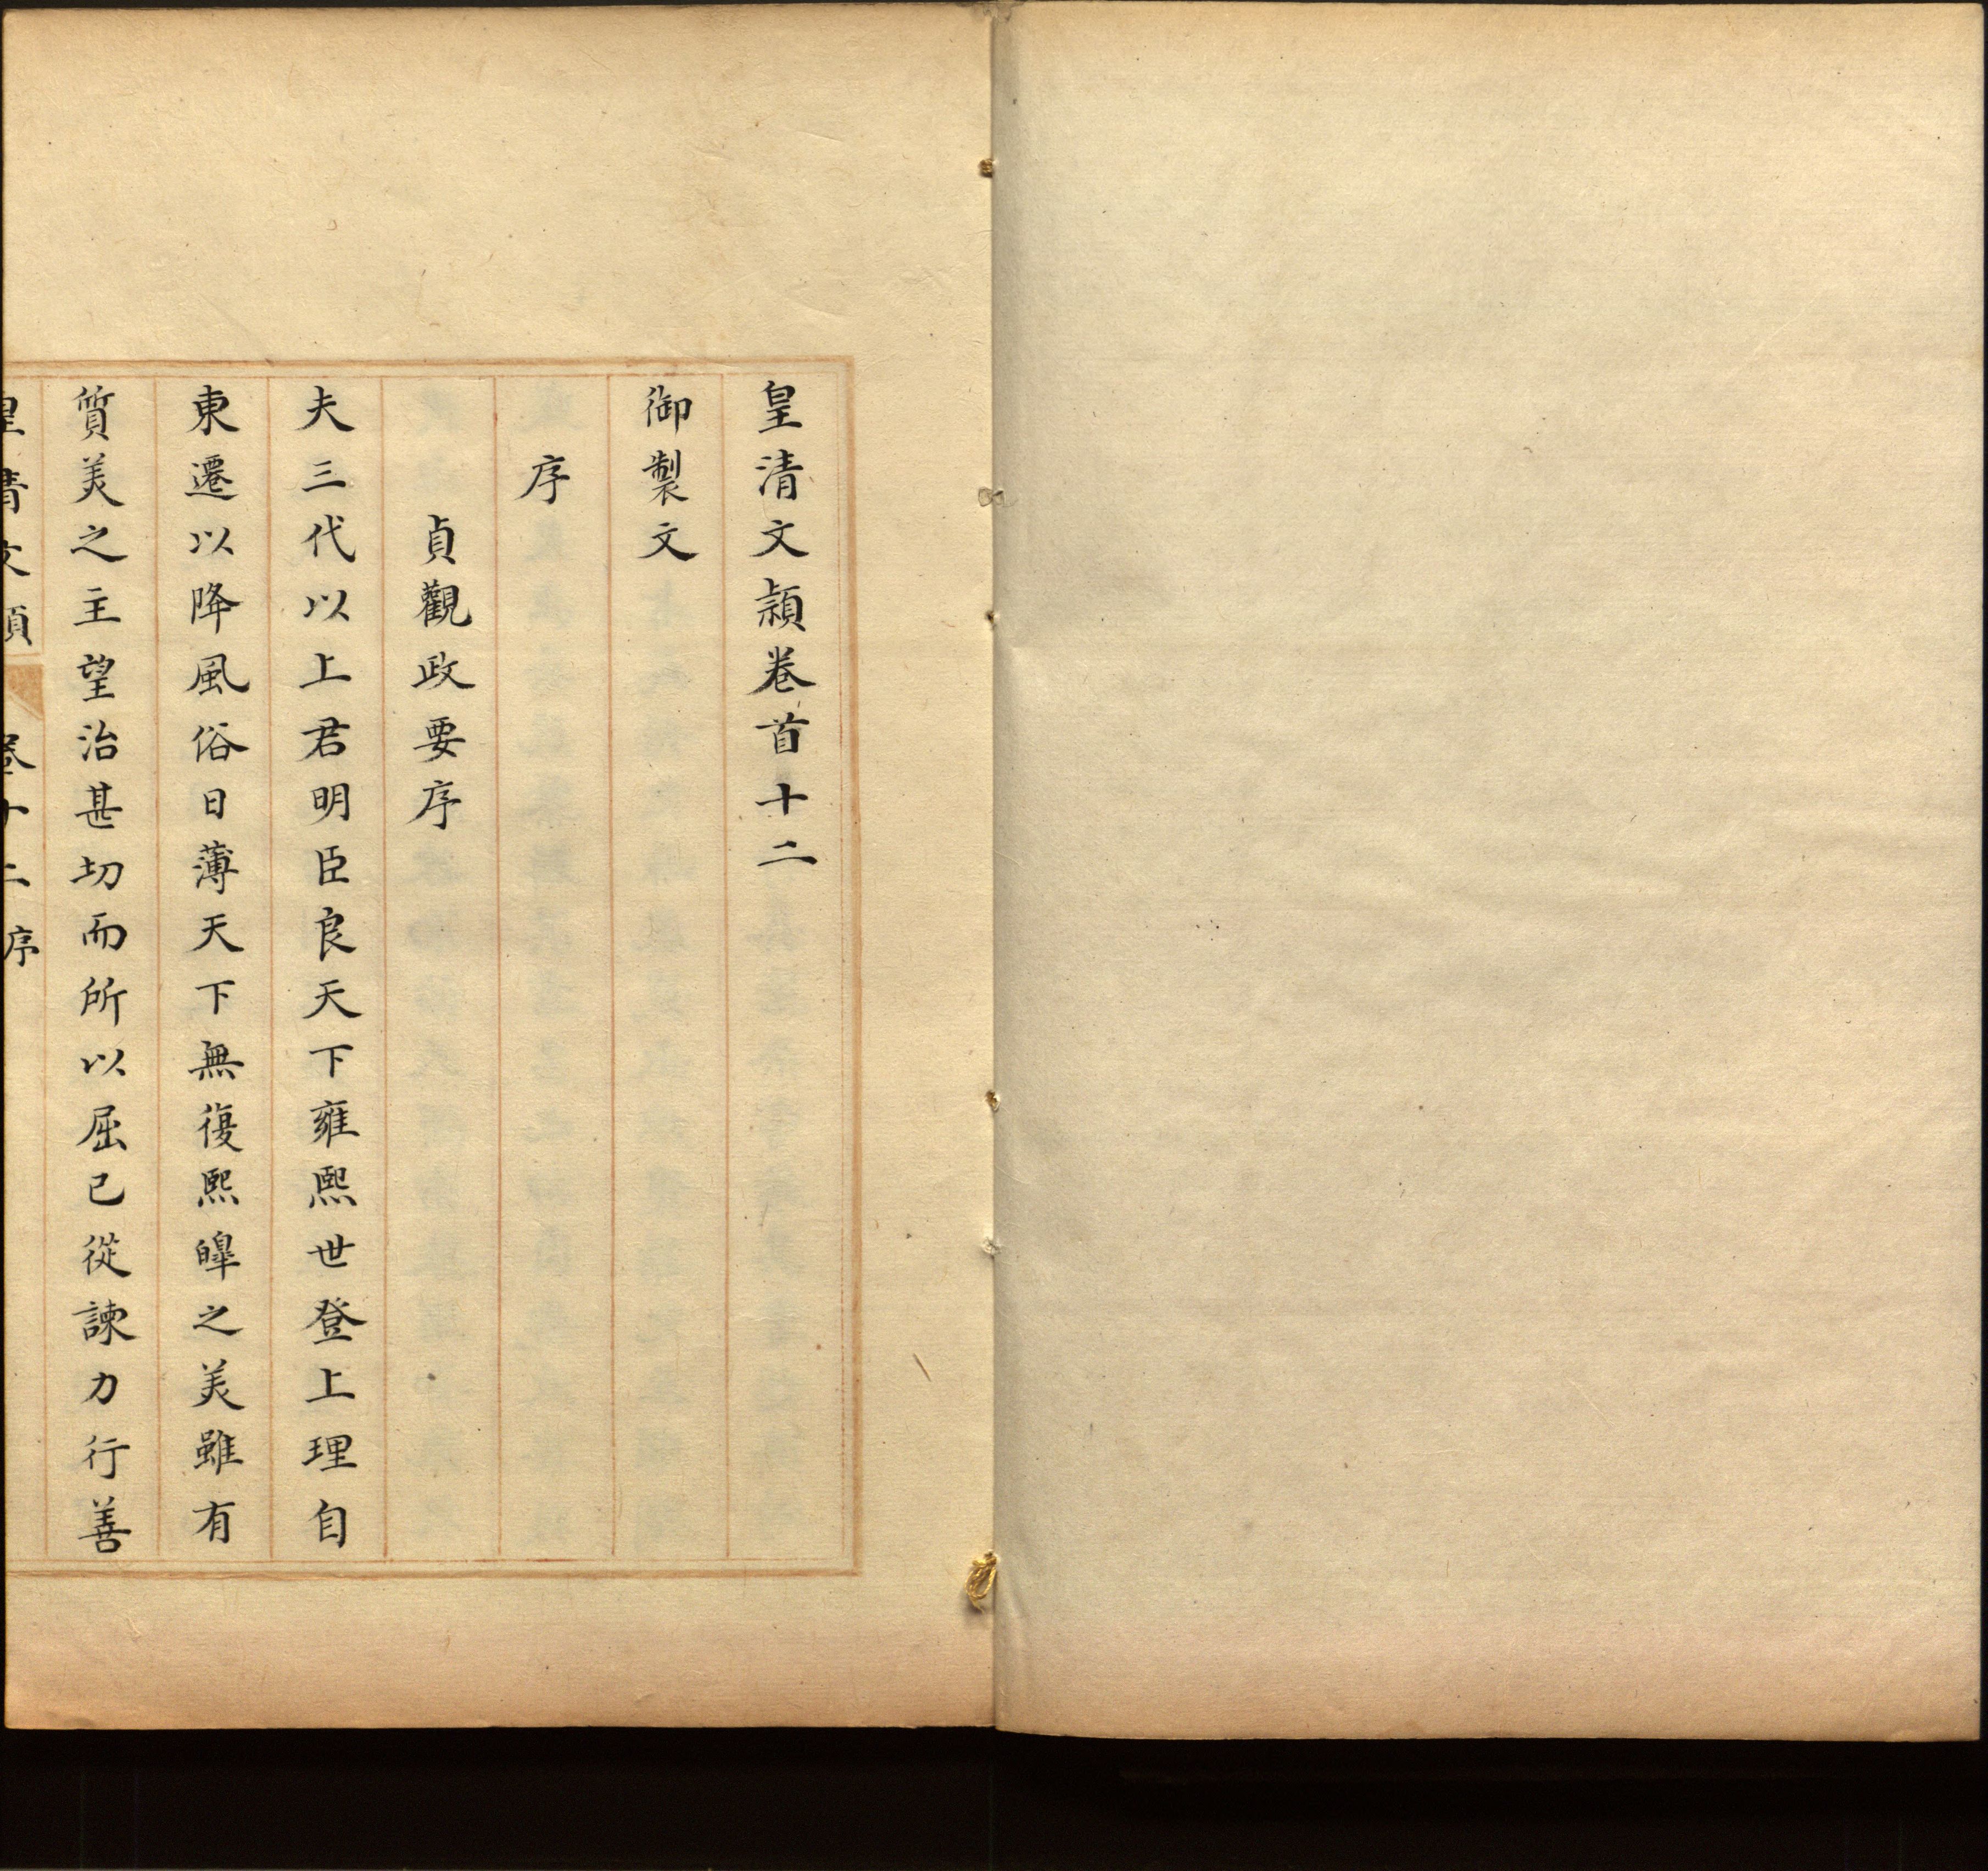 皇清文潁卷首十二
御製文
序
貞觀政要序
夫三代以上君明臣良天下雍熙世登上理自
東遷以降風俗日薄天下無復熙皞之美雖有
質美之主望治甚切而所以屈已從諫力行善
皇清文潁
卷十二序